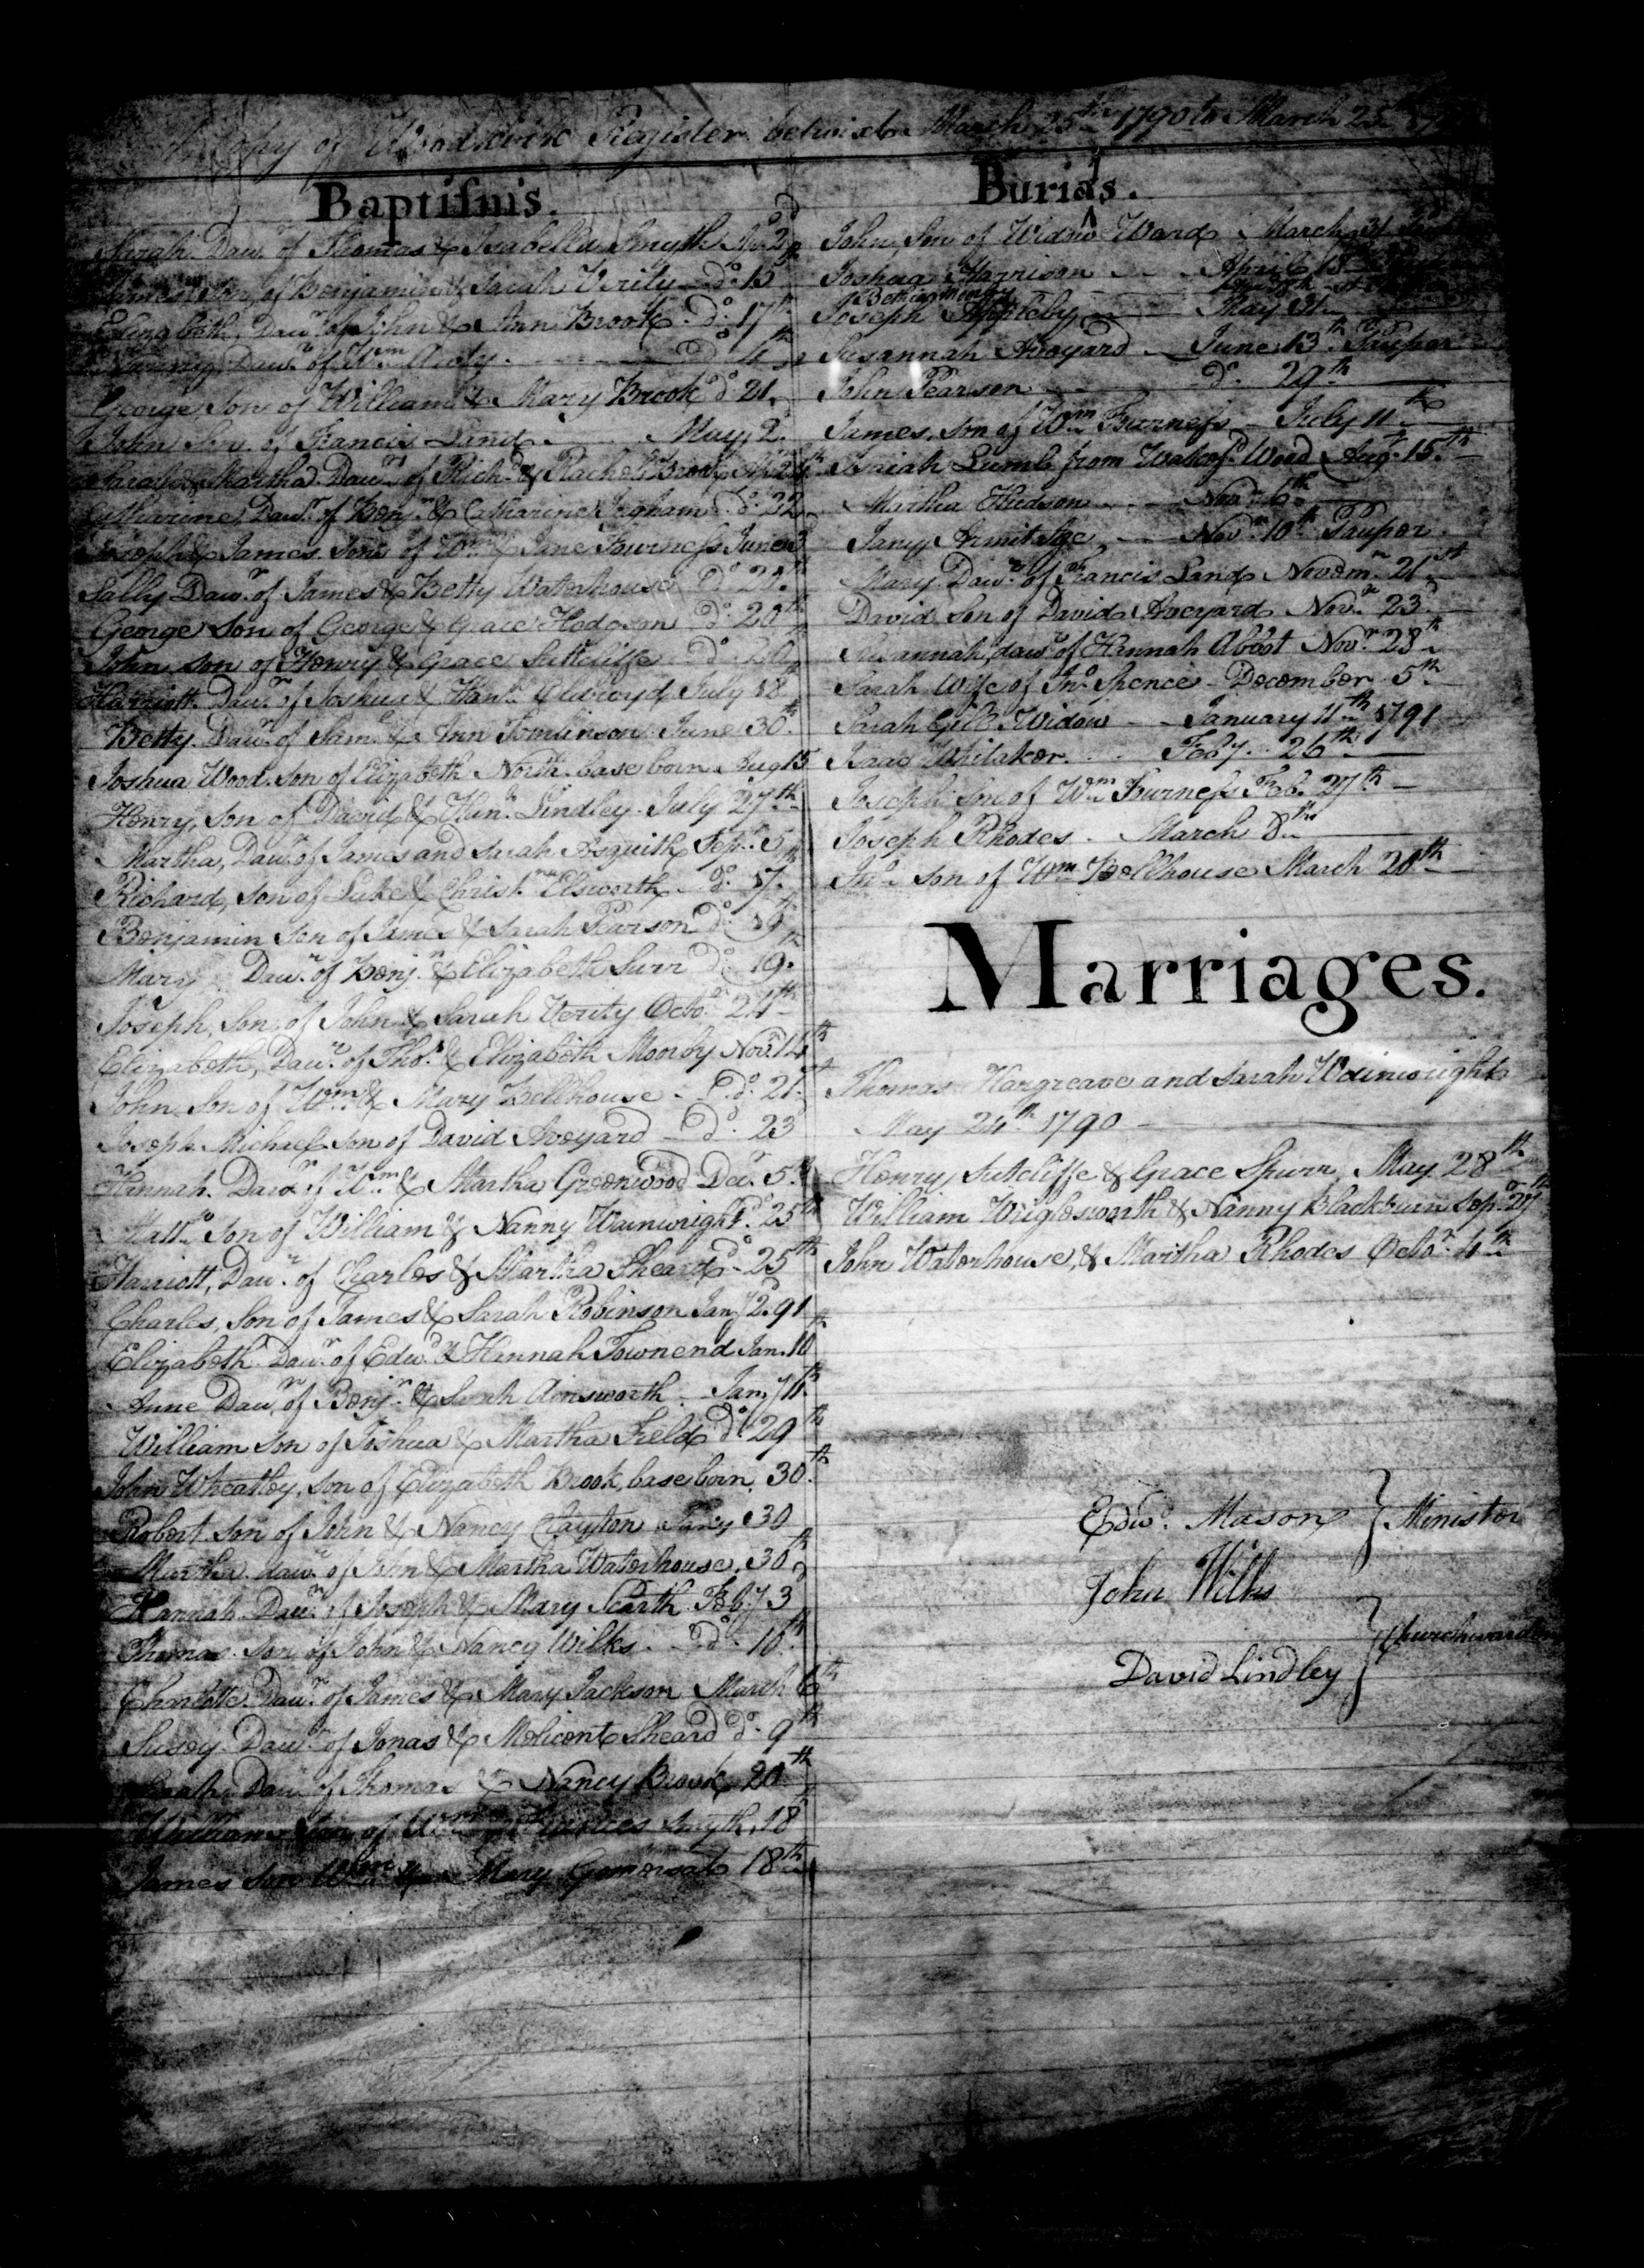 Copy of Woodkirk Register betwixt March 25th 1790 to March 25th
Baptisms.
Sarah Dawr. of Thomas & Isabella Smyth Ap. 2d
James Son of Benjamin & Sarah Verity Do. 13
Elizabeth, Dawr. of John & Ann Brook Do. 17th
Nanny Dawr. of Wm. Auty Do. 4th
George Son of William & Mary Brook do. 21.
John Son of Francis Land May 2.
Sarah & Martha Dawrs. of Richd. & Rachel Brook
Catharine Dawr. of Benjn. & Catharine Ingham do. 22
Joseph & James Sons of Wm. & Jane Fourness June 3
Sally Dawr. of James & Betty Waterhouse Do. 24th
George Son of George & Grace Hodgson Do. 20th
John son of Henry & Grace Suttcliffe Do. 20
Harriott Dawr. of Joshua & Hanh. Oldroyd July 18th
Betty Dawr. of Saml. & Ann Tomlinson June 30th.
Joshua Wood son of Elizabeth North base born Aug 15
Henry, Son of David & Han. Lindley July 27th
Martha, Dawr. of James and Sarah Asquith Sepr. 5th
Richard, son of Luke & Christna Elsworth Do. 17.
Benjamin Son of James & Sarah Pearson Do. 19th
Mary Dawr. of Benjn. & Elizabeth Surr Do. 19th.
Joseph, Son of John & Sarah Verity Octor. 24th
Elizabeth, Dawr. of Thos. & Elizabeth Moorby Novr. 14th
John Son of Wm. & Mary Bellhouse Do. 21st
Joseph Michael son of David Aveyard Do. 23
Hannah Dawr. of Wm. & Martha Greenwood Decr. 5th
Matt. Son of William & Nanny Wainwright Do. 25th
Harriott, Dawr. of Charles & Martha Sheard Do. 25th
Charles, Son of James & Sarah Robinson Jany. 2d. 91
Elizabeth Dawr. of Edwd. & Hannah Townend Jan. 10th
Anne Dawr. of Benjn. & Sarah Ainsworth Jany 11th
William Son of Joshua & Martha Field do. 29th
John Wheatley, Son of Elizabeth Brook, base born, 30th.
Robert Son of John & Nancy Clayton Jany 30
Martha dawr. of John & Martha Waterhouse, 30th
Hannah Dawr. of Joseph & Mary Scarth Feby 3d
Thomas Son of John & Nancy Wilks Do. 16th.
Charlotte Dawr. of James & Mary Jackson March 6th
Susey Dawr. of Jonas & Melicent Sheard do. 9th
Dawr. of Thomas & Nancy Brook 20th
William Son of Wm. & Frances Smyth, 18th
James Son Wm. & Mary Gomersal 18th
Burials.
John, Son of Widow Ward March 31
Joshua Harrison April 13
Joseph Appleby May 31
Susannah Aveyard June 13th Pauper
John Pearson Do. 29th
James, Son of Wm. Fourness July 11th
Isaiah Lumb from Wakefd. Wood Augt. 15th
Martha Hudson Novr. 6th
Jany Armitage Novr. 10th Pauper
Mary Dawr. of Francis Land Novemr. 21st
David Son of David Aveyard Novr. 23d
Susannah, dawr. of Hannah Abbot Novr. 28th
Sarah Wife of Jno. Spence December 5th
Sarah Gill Widow January 11th 1791
Isaac Whitaker Feby. 26th
Joseph Son of Wm. Fourness Feb. 27th
Joseph Rhodes March 8th
Jno. son of Wm. Bellhouse March 20th
Marriages.
Thomas Hargreave and Sarah Wainwright
May 24th 1790
Henry Sutcliffe & Grace Spurr May 28th
William Wriglesworth & Nanny Blackburn Sepr. 27th
John Waterhouse, & Martha Rhodes Octor. 4th
Edwd. Mason } Minister
John Wilks
David Lindley } Churchwardens